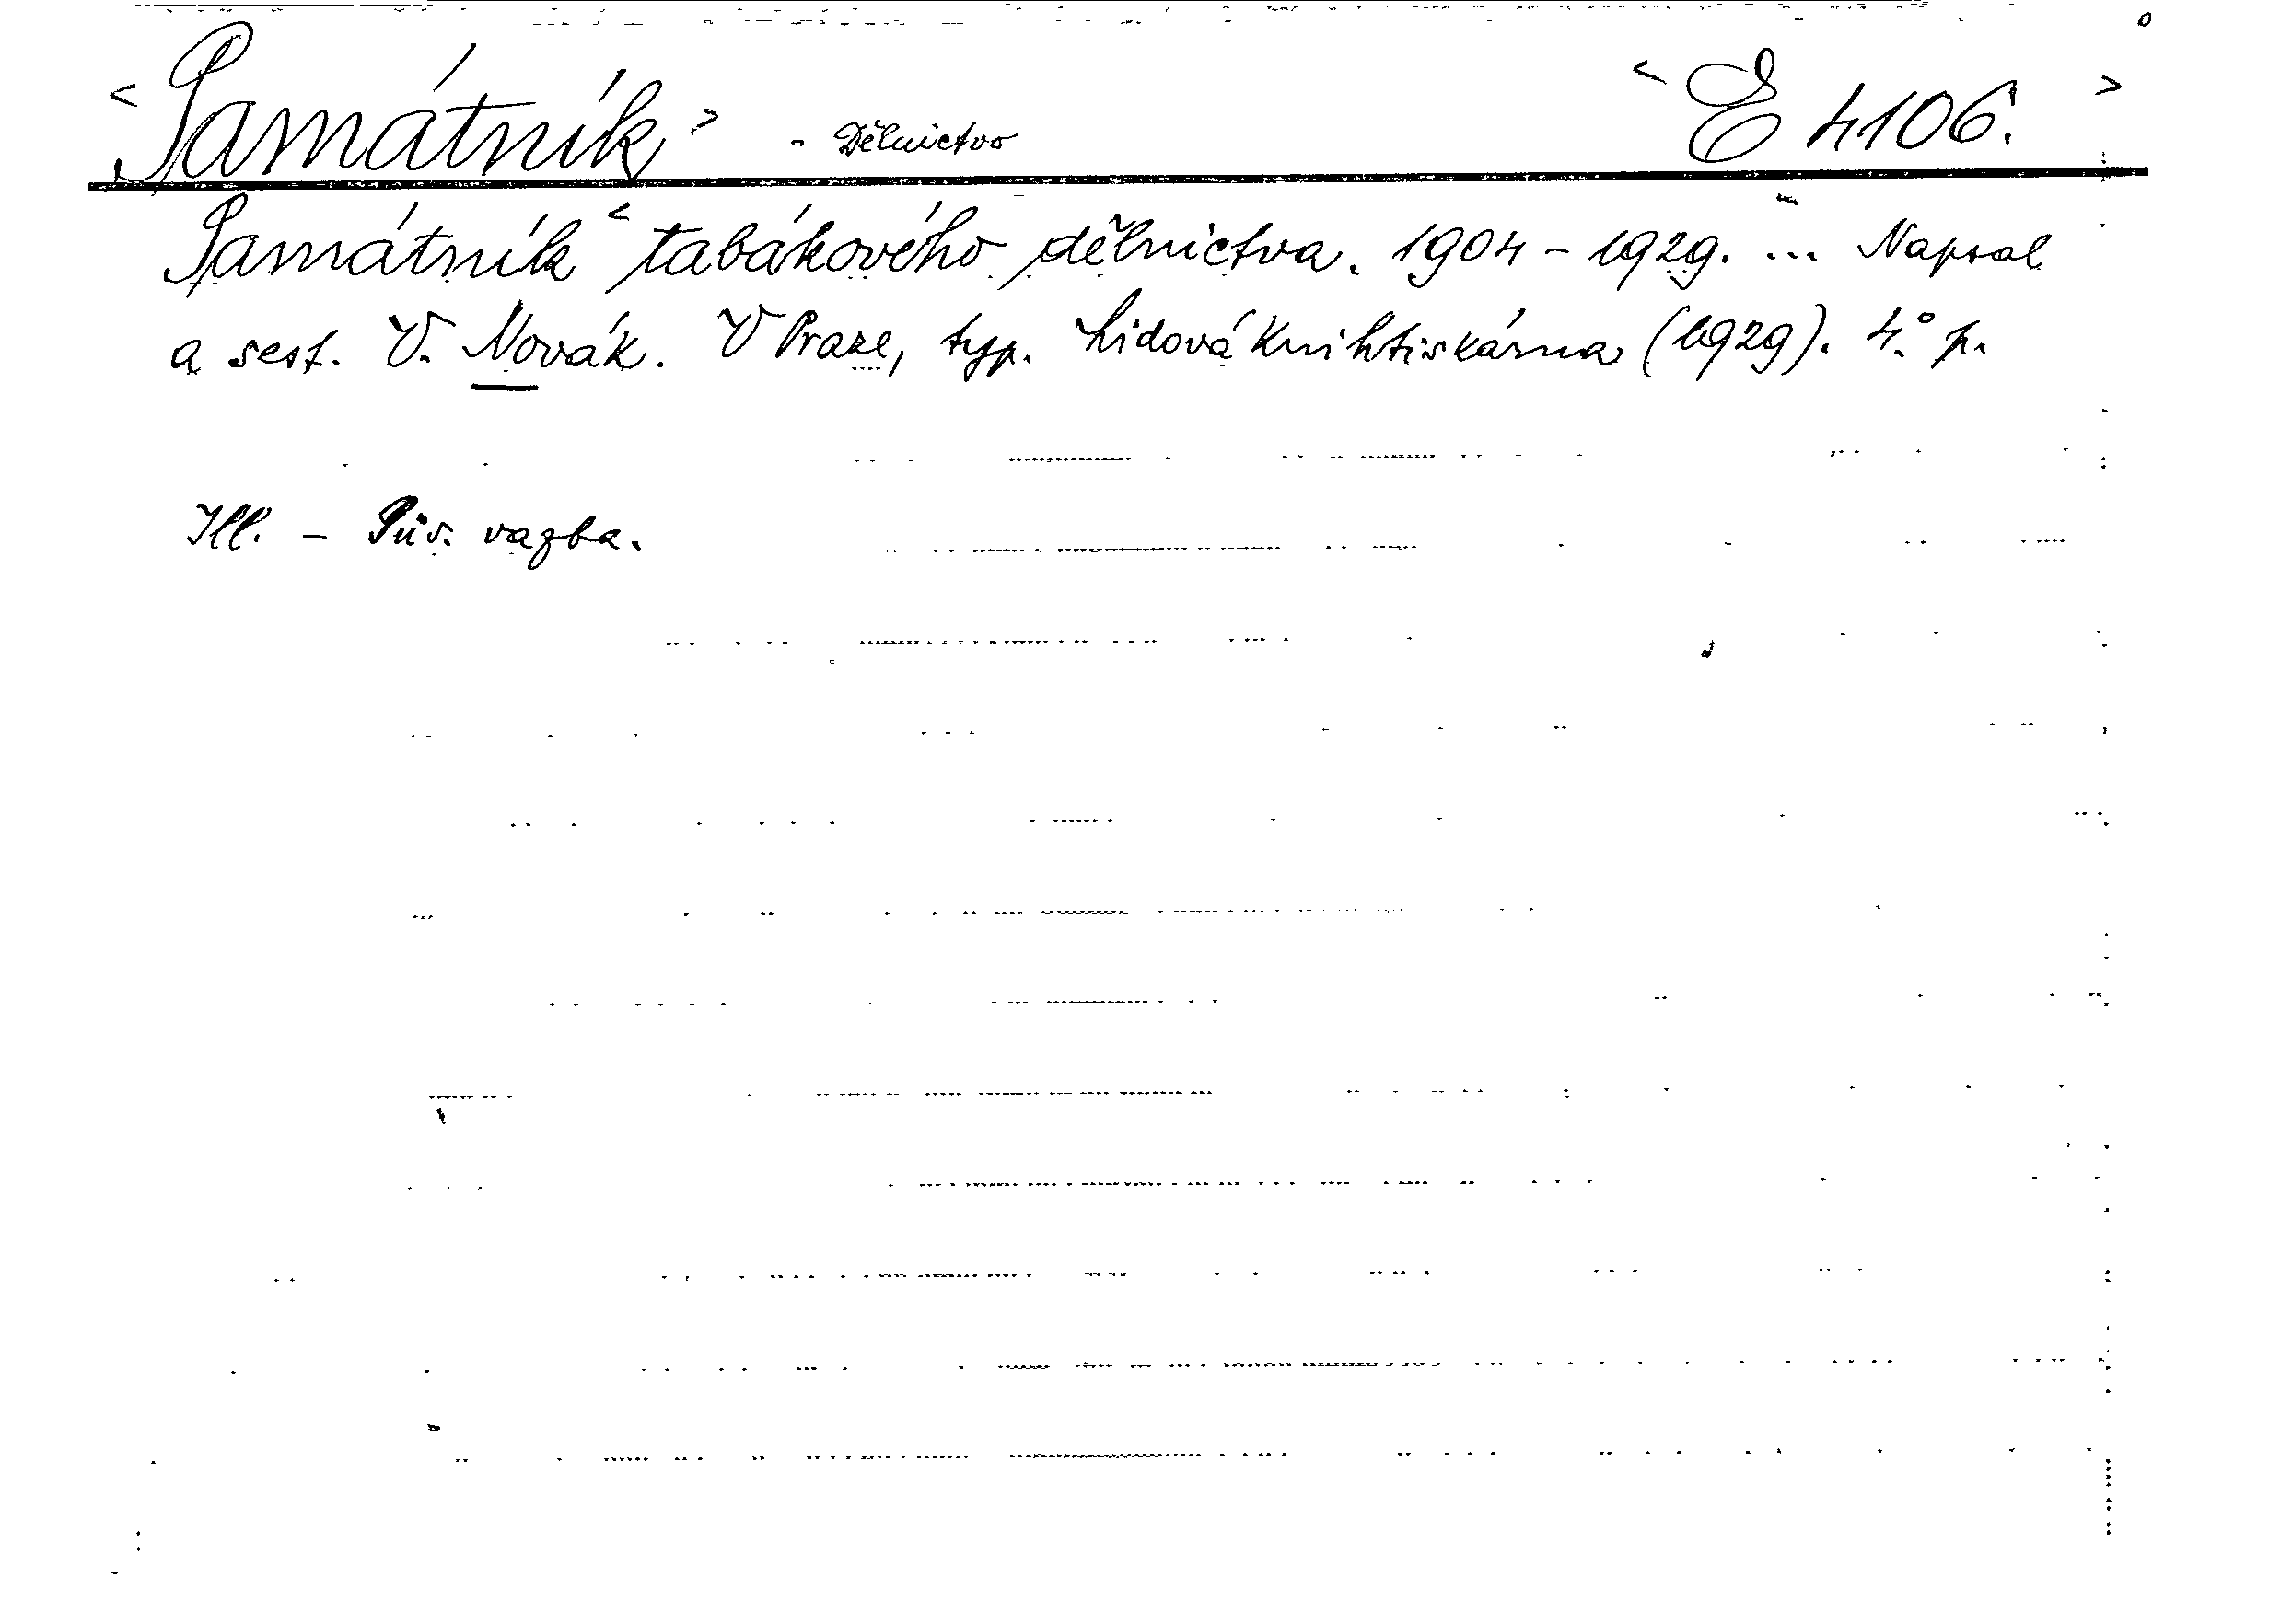 <Památník> - Dělnictvo <E 4106.>
Památník < tabákového dělnictva. 1904 - 1929. ... Napsal
a sest. V. Novák. V Praze, typ. Lidová knihtiskárna (1929). 4.° p.
Ill. - Pův. vazba.